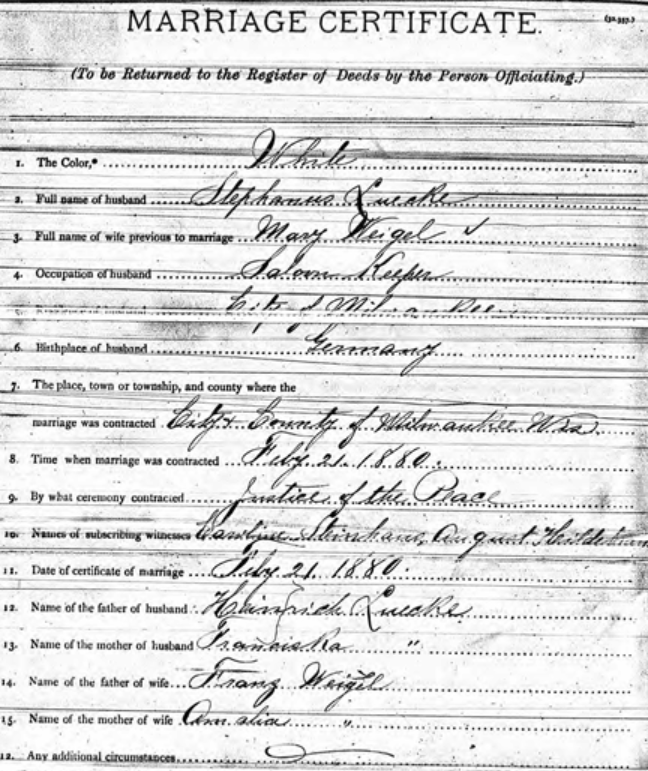 MARRIAGE CERTIFICATE.
(To be Returned to the Register of Deeds by the Person Officiating.)
1. The Color,* White
2. Full name of husband Stephanus Luecke
3. Full name of wife previous to marriage Mary Weigel ✓
4. Occupation of husband Saloon Keeper
City of Milwaukee
6. Birthplace of husband Germany
7. The place, town or township, and county where the
marriage was contracted City & County of Milwaukee Wis.
8. Time when marriage was contracted Feby 21. 1880.
9. By what ceremony contracted Justice of the Peace
10. Names of subscribing witnesses Caroline August
11. Date of certificate of marriage Feby 21 1880.
12. Name of the father of husband Heinrich Luecke
13. Name of the mother of husband Franciska "
14. Name of the father of wife Franz Weigel
15. Name of the mother of wife Amalia "
12. Any additional circumstances